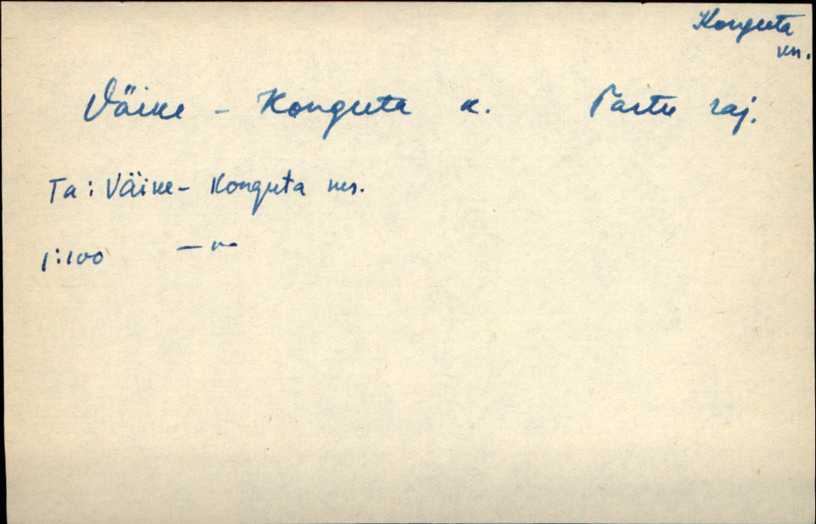 Konguta
kn.
Väike - Konguta k. Tartu raj.
Ta: Väike - Konguta ms.
1:100 — " —